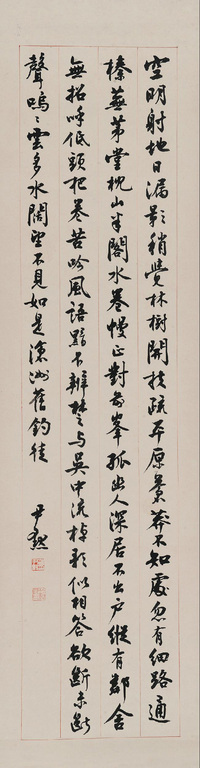 空明射地日漏影稍覺林樹開扶疏平原景莽不知處忽有細路通
榛蕪茅堂枕山半閣水卷幔正對前峯孤幽人深居不出戶縱有鄰舍
無招呼低頭把卷苦吟風語黯不辨楚与吳中流棹歌似相答欲斷未斷
聲嗚〻雲多水闊望不見如是滄洲舊釣徒
尹默